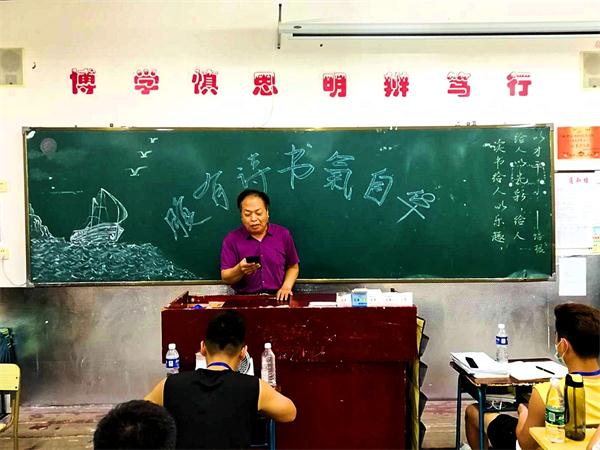 博学慎思 明辨笃行
腹有诗书氣自华
读书给人以乐趣，
给人以光彩，给人
以才干。——培根